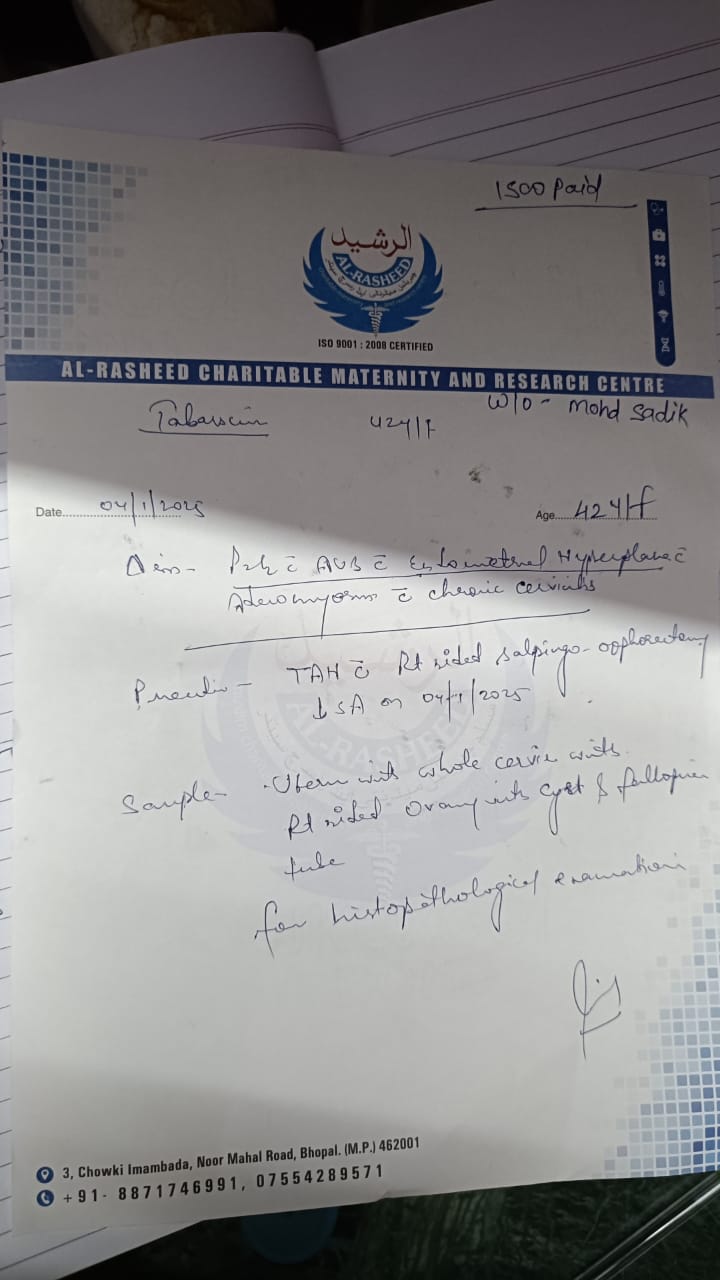 1500 paid
الرشيد
AL-RASHEED
ISO 9001 : 2008 CERTIFIED
AL-RASHEED CHARITABLE MATERNITY AND RESEARCH CENTRE
W/o - Mohd Sadik
42y/F
Date 04/1/2025
Age 42y/f
c̄ AUB c̄ Endometrial Hyperplasia c̄
c̄ chronic cervicitis
TAH c̄ Rt sided salpingo-oophorectomy
↓ SA on 04/1/2025
Sample - Uterus with whole cervix with
Rt sided Ovary with cyst & fallopian
tube
for histopathological examination
3, Chowki Imambada, Noor Mahal Road, Bhopal. (M.P.) 462001
+91- 8871746991, 07554289571